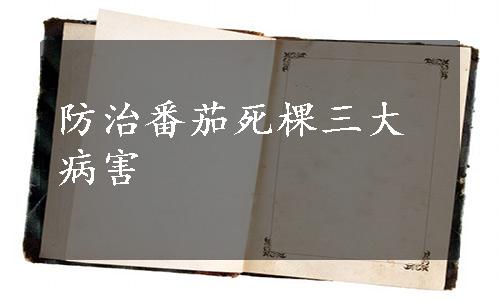 防治番茄死棵三大
病害